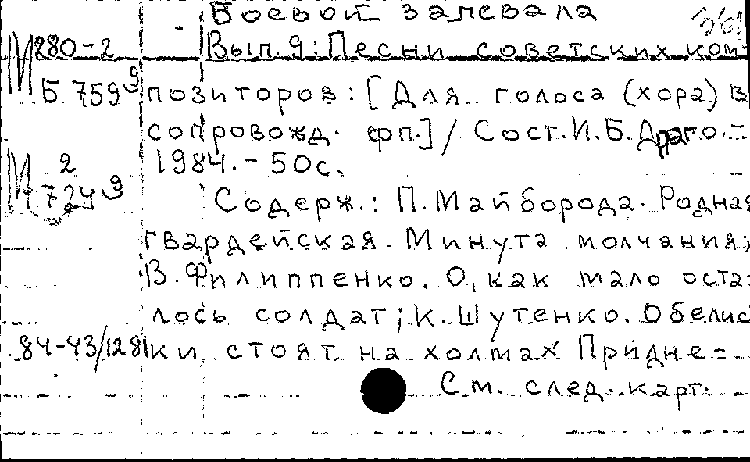 Боевой запевала
М 280-2
Вып. 9: Песни советских ком-
Б 759 9
позиторов: [Для голоса (хора) в
сопровожд. фп.] / Сост. И.Б. Драго.-
1984.- 50с.
М 2
724 9
Содерж.: П. Майборода. Родная
гвардейская. Минута молчания;
В. Филиппенко. О, как мало оста-
лось солдат; К. Шутенко. Обелис
84-43/1281
ки стоят на холмах Придне-
См. след. карт.